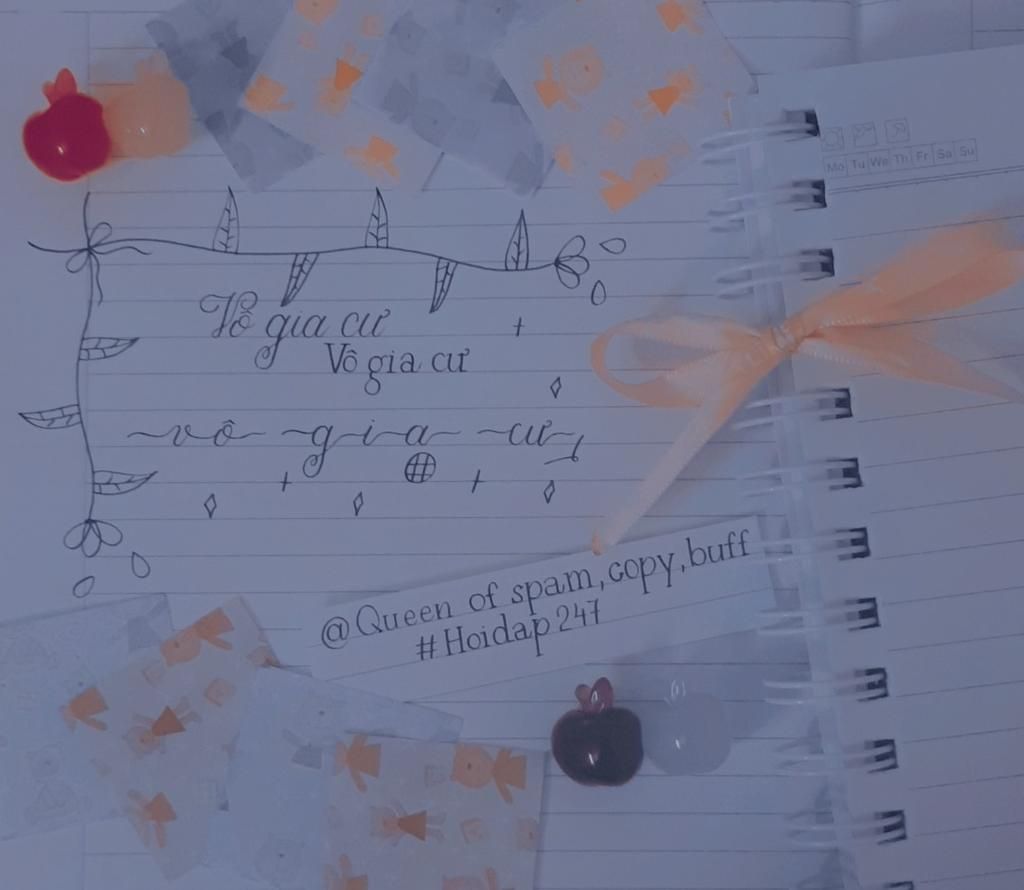 Mo Tu We Th Fr Sa Su
Vô gia cư
Vô gia cư
~vô~ ~gia~ ~cư~
@Queen of spam,copy,buff
#Hoidap247